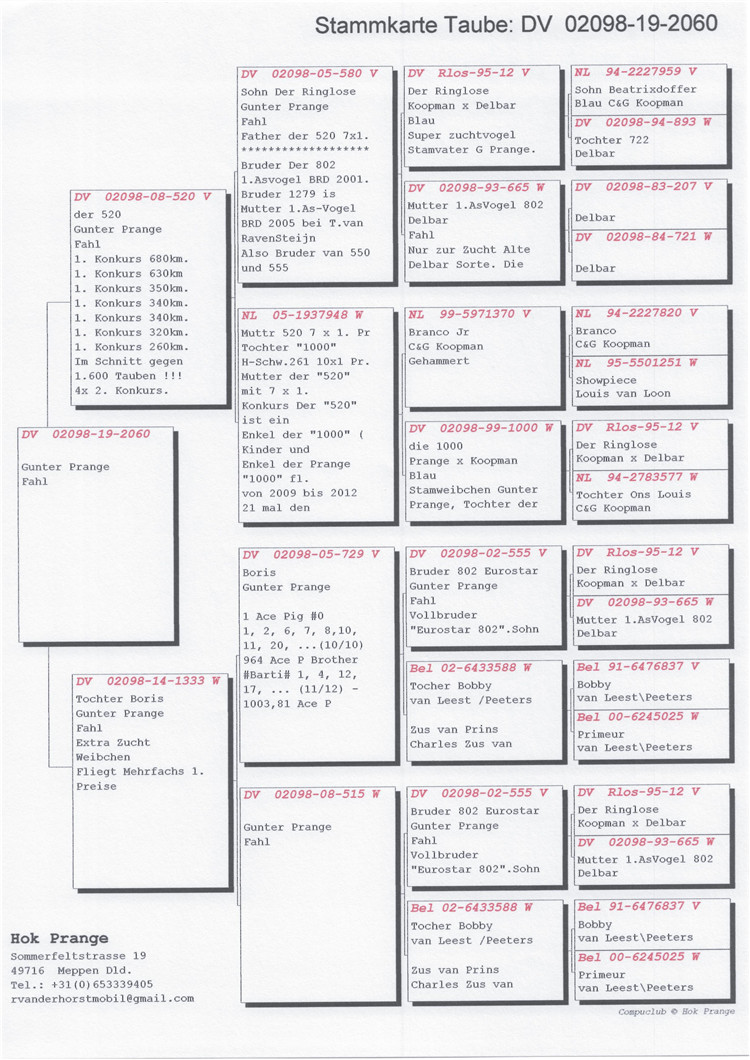 Stammkarte Taube: DV 02098-19-2060
DV 02098-19-2060
Gunter Prange
Fahl
DV 02098-08-520 V
der 520
Gunter Prange
Fahl
1. Konkurs 680km.
1. Konkurs 630km
1. Konkurs 350km.
1. Konkurs 340km.
1. Konkurs 340km.
1. Konkurs 320km.
1. Konkurs 260km.
Im Schnitt gegen
1.600 Tauben !!!
4x 2. Konkurs.
DV 02098-14-1333 W
Tochter Boris
Gunter Prange
Fahl
Extra Zucht
Weibchen
Fliegt Mehrfachs 1.
Preise
DV 02098-05-580 V
Sohn Der Ringlose
Gunter Prange
Fahl
Father der 520 7x1.
*******************
Bruder Der 802
1.Asvogel BRD 2001.
Bruder 1279 is
Mutter 1.As-Vogel
BRD 2005 bei T.van
RavenSteijn
Also Bruder van 550
und 555
NL 05-1937948 W
Muttr 520 7 x 1. Pr
Tochter "1000"
H-Schw.261 10x1 Pr.
Mutter der "520"
mit 7 x 1.
Konkurs Der "520"
ist ein
Enkel der "1000" (
Kinder und
Enkel der Prange
"1000" fl.
von 2009 bis 2012
21 mal den
DV 02098-05-729 V
Boris
Gunter Prange
1 Ace Pig #0
1, 2, 6, 7, 8,10,
11, 20, ...(10/10)
964 Ace P Brother
#Barti# 1, 4, 12,
17, ... (11/12) -
1003,81 Ace P
DV 02098-08-515 W
Gunter Prange
Fahl
DV Rlos-95-12 V
Der Ringlose
Koopman x Delbar
Blau
Super zuchtvogel
Stamvater G Prange.
DV 02098-93-665 W
Mutter 1.AsVogel 802
Delbar
Fahl
Nur zur Zucht Alte
Delbar Sorte. Die
NL 99-5971370 V
Branco Jr
C&G Koopman
Gehammert
DV 02098-99-1000 W
die 1000
Prange x Koopman
Blau
Stamweibchen Gunter
Prange, Tochter der
DV 02098-02-555 V
Bruder 802 Eurostar
Gunter Prange
Fahl
Vollbruder
"Eurostar 802".Sohn
Bel 02-6433588 W
Tocher Bobby
van Leest /Peeters
Zus van Prins
Charles Zus van
DV 02098-02-555 V
Bruder 802 Eurostar
Gunter Prange
Fahl
Vollbruder
"Eurostar 802".Sohn
Bel 02-6433588 W
Tocher Bobby
van Leest /Peeters
Zus van Prins
Charles Zus van
NL 94-2227959 V
Sohn Beatrixdoffer
Blau C&G Koopman
DV 02098-94-893 W
Tochter 722
Delbar
DV 02098-83-207 V
Delbar
DV 02098-84-721 W
Delbar
NL 94-2227820 V
Branco
C&G Koopman
NL 95-5501251 W
Showpiece
Louis van Loon
DV Rlos-95-12 V
Der Ringlose
Koopman x Delbar
NL 94-2783577 W
Tochter Ons Louis
C&G Koopman
DV Rlos-95-12 V
Der Ringlose
Koopman x Delbar
DV 02098-93-665 W
Mutter 1.AsVogel 802
Delbar
Bel 91-6476837 V
Bobby
van Leest\Peeters
Bel 00-6245025 W
Primeur
van Leest\Peeters
DV Rlos-95-12 V
Der Ringlose
Koopman x Delbar
DV 02098-93-665 W
Mutter 1.AsVogel 802
Delbar
Bel 91-6476837 V
Bobby
van Leest\Peeters
Bel 00-6245025 W
Primeur
van Leest\Peeters
Hok Prange
Sommerfeltstrasse 19
49716 Meppen Dld.
Tel.: +31(0)653339405
rvanderhorstmobil@gmail.com
Compuclub © Hok Prange